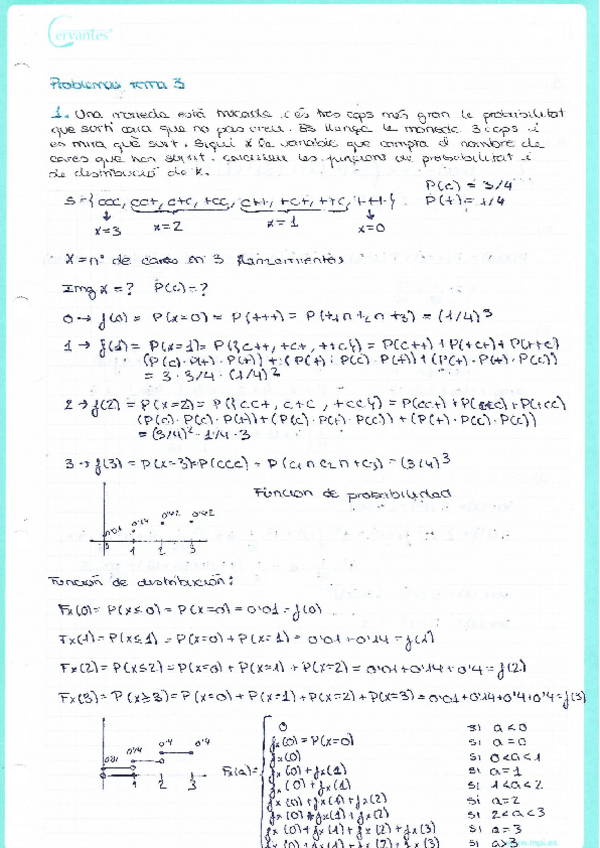 Cervantes
Problemas tema 3
1. Una moneda está trucada i és tres cops més gran la probabilitat
que surti cara que no pas creu. Es llança la moneda 3 cops i
es mira què surt. Sigui X la variable que compta el nombre de
cares que han sortit. Calculeu les funcions de probabilitat i
de distribució de X.
P(c) = 3/4
S = {ccc, cc+, c+c, +cc, c++, +c+, ++c, +++} P(+) = 1/4
x=3 x=2 x=1 x=0
X = nº de caras en 3 lanzamientos
Img X = ? P(c) = ?
0 → f(0) = P(X=0) = P(+++) = P(+1 ∩ +2 ∩ +3) = (1/4)^3
1 → f(1) = P(X=1) = P({c++, +c+, ++c}) = P(c++) + P(+c+) + P(++c)
(P(c)·P(+)·P(+)) + (P(+)·P(c)·P(+)) + (P(+)·P(+)·P(c))
= 3·3/4·(1/4)^2
2 → f(2) = P(X=2) = P({cc+, c+c, +cc}) = P(cc+) + P(c+c) + P(+cc)
(P(c)·P(c)·P(+)) + (P(c)·P(+)·P(c)) + (P(+)·P(c)·P(c))
= (3/4)^2·1/4·3
3 → f(3) = P(X=3) = P(ccc) = P(c1 ∩ c2 ∩ c3) = (3/4)^3
Función de probabilidad
0'01 0'14 0'42 0'42
1 2 3
Función de distribución:
Fx(0) = P(X≤0) = P(X=0) = 0'01 = f(0)
Fx(1) = P(X≤1) = P(X=0) + P(X=1) = 0'01 + 0'14 = f(1)
Fx(2) = P(X≤2) = P(X=0) + P(X=1) + P(X=2) = 0'01 + 0'14 + 0'4 = f(2)
Fx(3) = P(X≥3) = P(X=0) + P(X=1) + P(X=2) + P(X=3) = 0'01 + 0'14 + 0'4 + 0'4 = f(3)
0'01 0'14 0'4 0'4
1 2 3
Fx(a) =
0 si a < 0
fx(0) = P(X=0) si a = 0
fx(0) si 0 < a < 1
fx(0) + fx(1) si a = 1
fx(0) + fx(1) si 1 < a < 2
fx(0) + fx(1) + fx(2) si a = 2
fx(0) + fx(1) + fx(2) si 2 < a < 3
fx(0) + fx(1) + fx(2) + fx(3) si a = 3
fx(0) + fx(1) + fx(2) + fx(3) si a > 3